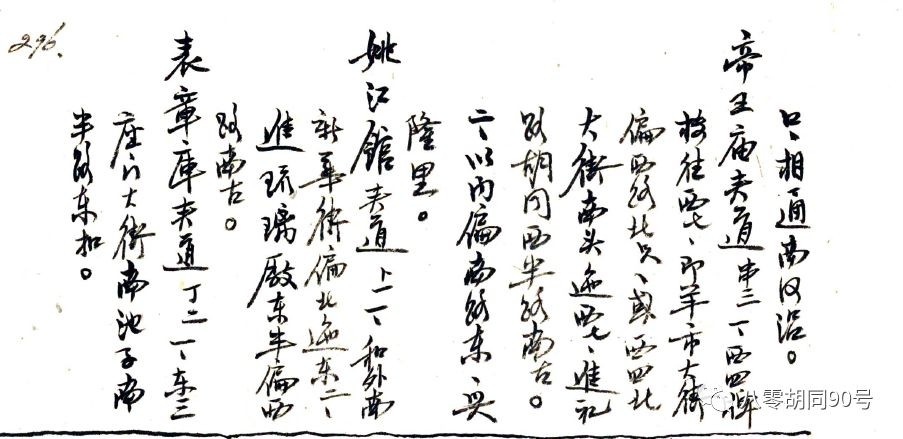 296.
口、相通南河沿。
帝王庙夹道 三丁、西四牌
楼往西七、即羊市大街
偏西路北只、或西四北
大街南头迤西七、進礼
路胡同西半路南古。
二、以内偏南路东、兴
隆里。
姚江館夹道 卜一一、和外南
新華街偏北迤东二、
進琉璃廠东半偏西
路南古。
表章庫夹道 丁二一、东三
座门大街南池子南
半路东扣。
八零胡同90号